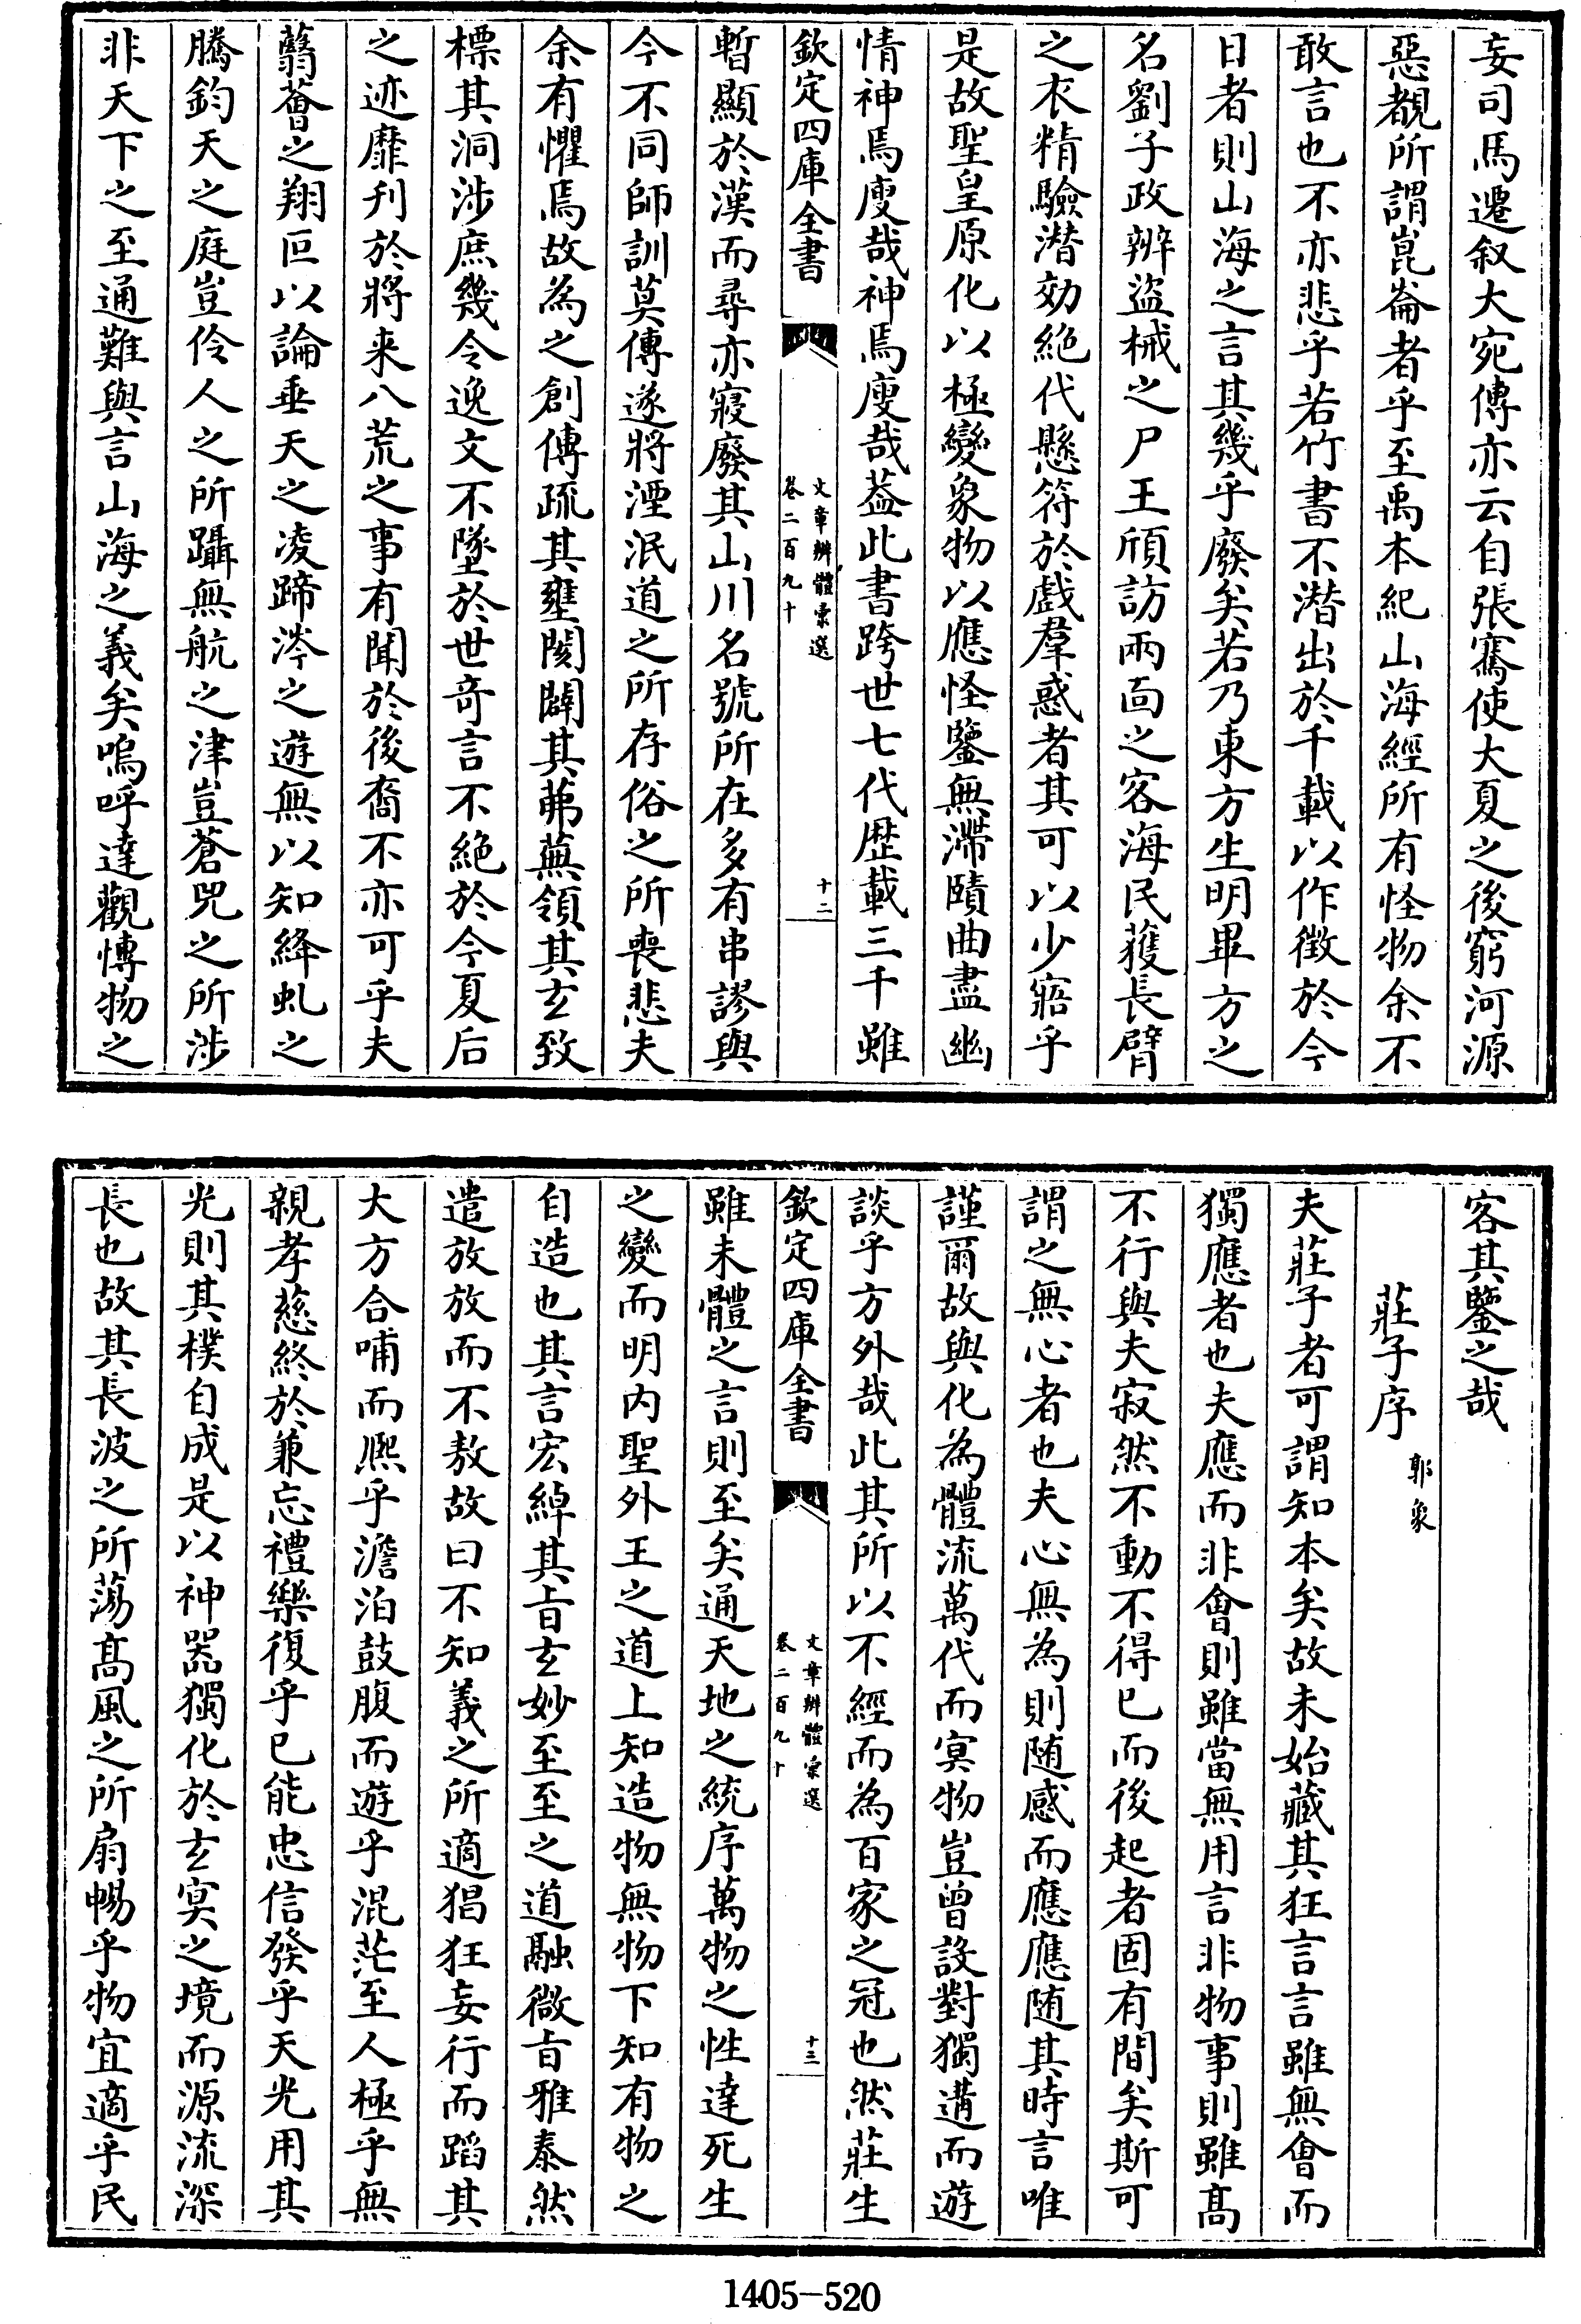 妄司馬遷叙大宛傳亦云自張騫使大夏之後窮河源
惡覩所謂崑崙者乎至禹本紀山海經所有怪物余不
敢言也不亦悲乎若竹書不潛出於千載以作徵於今
日者則山海之言其幾乎廢矣若乃東方生明畢方之
名劉子政辨盜械之尸王頎訪兩面之客海民獲長臂
之衣精驗潛効絕代懸符於戲羣惑者其可以少寤乎
是故聖皇原化以極變象物以應怪鑒無滯賾曲盡幽
情神焉廋哉神焉廋哉葢此書跨世七代歴載三千雖
欽定四庫全書
文章辨體彚選
卷二百九十
十二
暫顯於漢而尋亦寢廢其山川名號所在多有舛謬與
今不同師訓莫傳遂將湮泯道之所存俗之所喪悲夫
余有懼焉故為之創傳疏其壅閡闢其茀蕪領其𤣥致
標其洞涉庶幾令逸文不墜於世奇言不絕於今夏后
之迹靡刋於將来八荒之事有聞於後裔不亦可乎夫
蘙薈之翔叵以論垂天之凌蹄涔之遊無以知絳虬之
騰鈞天之庭豈伶人之所躡無航之津豈蒼兕之所涉
非天下之至通難與言山海之義矣嗚呼達觀愽物之
客其鑒之哉
莊子序
郭象
夫莊子者可謂知本矣故未始藏其狂言言雖無會而
獨應者也夫應而非會則雖當無用言非物事則雖髙
不行與夫寂然不動不得已而後起者固有間矣斯可
謂之無心者也夫心無為則随感而應應随其時言唯
謹爾故與化為體流萬代而冥物豈曾設對獨遘而遊
談乎方外哉此其所以不經而為百家之冠也然莊生
欽定四庫全書
文章辨體彚選
卷二百九十
十三
雖未體之言則至矣通天地之統序萬物之性達死生
之變而明内聖外王之道上知造物無物下知有物之
自造也其言宏綽其㫖𤣥妙至至之道融微㫖雅泰然
遣放放而不敖故曰不知義之所適猖狂妄行而蹈其
大方合哺而熈乎澹泊鼓腹而遊乎混茫至人極乎無
親孝慈終於兼忘禮樂復乎已能忠信發乎天光用其
光則其樸自成是以神器獨化於𤣥冥之境而源流深
長也故其長波之所蕩髙風之所扇暢乎物宜適乎民
1405-520